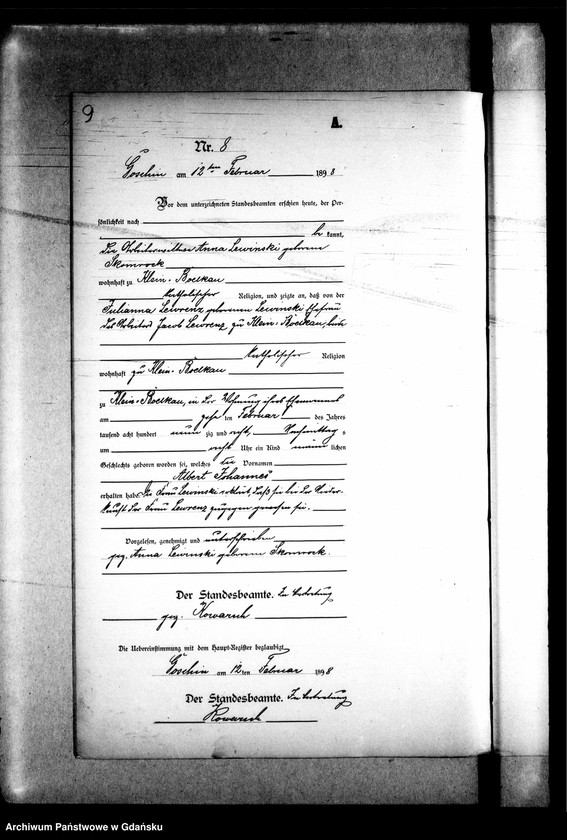 9
A.
Nr. 8
Göschin am 12ten Februar 1898
Vor dem unterzeichneten Standesbeamten erschien heute, der Per-
sönlichkeit nach
be kannt,
die Arbeiterwittwe Anna Lewinski geborene
Skomrock
wohnhaft zu Klein-Boelkau
katholischer Religion, und zeigte an, daß von der
Julianna Lewrenz geborenen Lewinski Ehefrau
des Arbeiters Jacob Lewrenz zu Klein-Boelkau, beide
katholischer Religion
wohnhaft zu Klein-Boelkau
zu Klein-Boelkau, in der Wohnung ihres Ehemannes
am ten Februar des Jahres
tausend acht hundert neun zig und acht, Nachmittags
um acht Uhr ein Kind männ lichen
Geschlechts geboren worden sei, welches die Vornamen
Albert Johannes
erhalten habe. Die Frau Lewinski erklärt, daß sie bei der Nieder-
kunft der Frau Lewrenz zugegen gewesen sei.
Vorgelesen, genehmigt und unterschrieben
gez. Anna Lewinski geborene Skomrock.
Der Standesbeamte. In Vertretung
gez. Kowarsch
Die Uebereinstimmung mit dem Haupt-Register beglaubigt
Göschin am 12ten Februar 1898
Der Standesbeamte. In Vertretung
Kowarsch
Archiwum Państwowe w Gdańsku